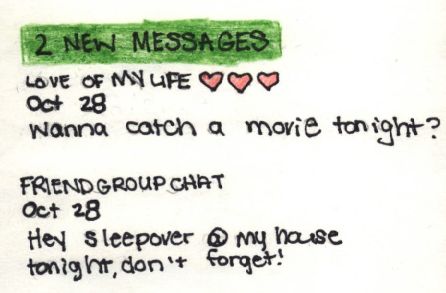 2 NEW MESSAGES
LOVE OF MY LIFE ♥♥♥
Oct 28
Wanna catch a movie tonight?
FRIENDGROUP CHAT
Oct 28
Hey sleepover @ my house
tonight, don't forget!